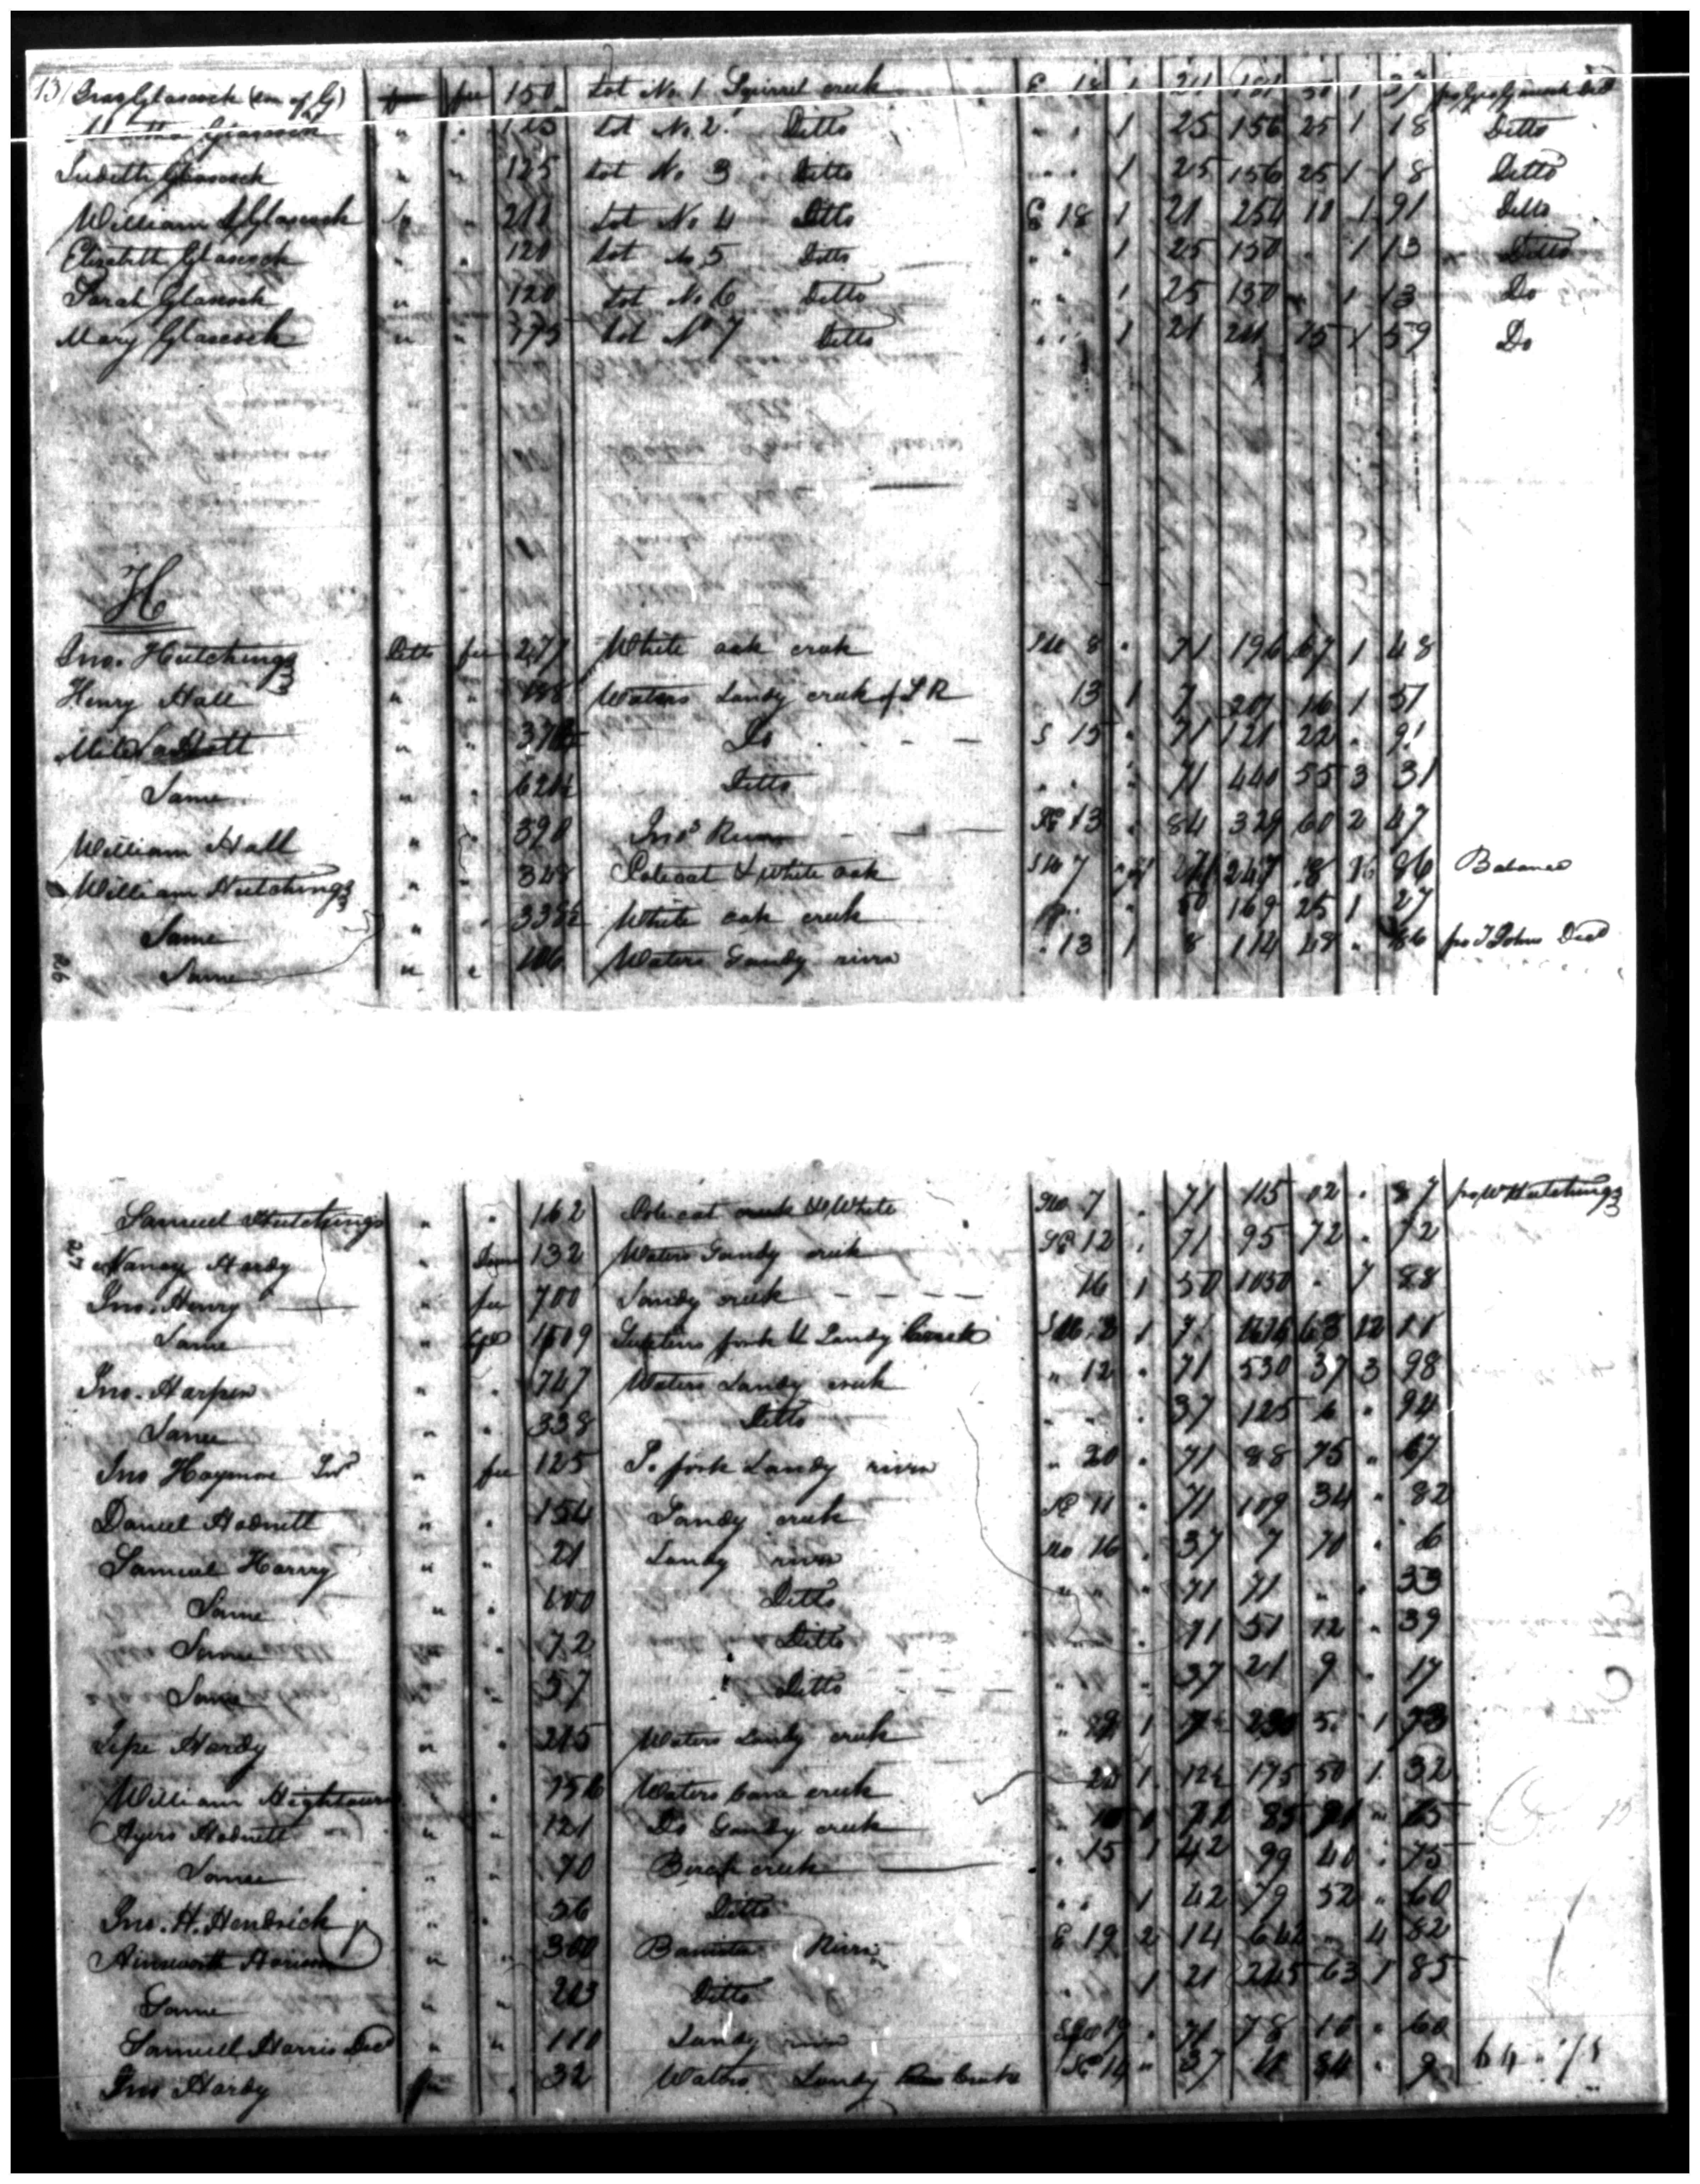 13
Glascock (son of G) fee 150 Lot No. 1 Squirrel creek E 18 1 21 181 50 1 37
Glascock " " 125 Lot No. 2 Ditto " " 1 25 156 25 1 18 Ditto
Judith Glascock " " 125 Lot No. 3 Ditto " " 1 25 156 25 1 18 Ditto
William Glascock " " 211 Lot No. 4 Ditto E 18 1 21 254 11 1 91 Ditto
Elizabeth Glascock " " 120 Lot No. 5 Ditto " " 1 25 150 " 1 13 Ditto
Sarah Glascock " " 120 Lot No. 6 Ditto " " 1 25 150 " 1 13 Do
Mary Glascock " " 175 Lot No 7 Ditto " " 1 21 211 75 1 59 Do
H
Jno. Hutchings Ditto fee 277 White oak creek SW 8 " 71 196 67 1 48
Henry Hall " " 188 Waters Sandy creek of S R 13 1 7 201 16 1 51
" " Do S 15 " 71 121 22 " 91
Same " " 620½ Ditto " " " 71 440 55 3 31
William Hall " " 390 NE 13 " 84 329 60 2 47
William Hutchings " " 348 Polecat & White oak SW 7 " 71 247 8 1 86 Balance
Same " " 338½ White oak creek " 50 169 25 1 27
Same " " 106 Waters Sandy river " 13 1 8 114 48 " 86 pr J Johns Decd
26
Samuel Hutchings " " 162 Polecat creek & White SW 7 " 71 115 02 " 87 pr W Hutchings
27
Nancy Hardy " 132 Waters Sandy creek SE 12 " 71 95 72 " 72
Jno. Henry " fee 700 Sandy creek 16 1 50 1050 " 7 88
Same " 1509 fork & Sandy Creek 1 7 1616 63 12 11
Jno. Harper " " 747 Waters Sandy creek " 12 " 71 530 37 3 98
Same " " 338 Ditto " " " 37 125 6 " 94
Jno Haymore Junr " fee 125 S. fork Sandy river " 20 " 71 88 75 " 67
Daniel Hodnett " " 154 Sandy creek NE 11 " 71 109 34 " 82
Samuel Harvy " " 21 Sandy river SW 16 " 37 7 70 " 6
Same " " 100 Ditto " " " 71 71 " " 53
Same " " 72 Ditto " " " 71 51 12 " 39
Same " " 57 Ditto " " " 37 21 9 " 17
Hardy " " 215 Waters Sandy creek " 1 7 230 5 1 73
William Hightower " 156 Waters Cane creek " 20 1 12½ 175 50 1 32
Ayers Hodnett " " 121 Do Sandy creek " 1 85 91 " 65
Same " " 70 Birch creek " 15 1 42 99 40 " 75
Jno. H. Hendrick " " 56 Ditto " " 1 42 79 52 " 60
Ainsworth Harison " " 300 Banister River E 19 2 14 642 " 4 82
Same " " 203 Ditto " " 1 21 245 63 1 85
Samuel Harris Decd " " 110 Sandy river 19 " 71 78 10 " 60
Jno Hardy " 32 Waters Sandy Creek NE 14 " 37 11 84 " 9